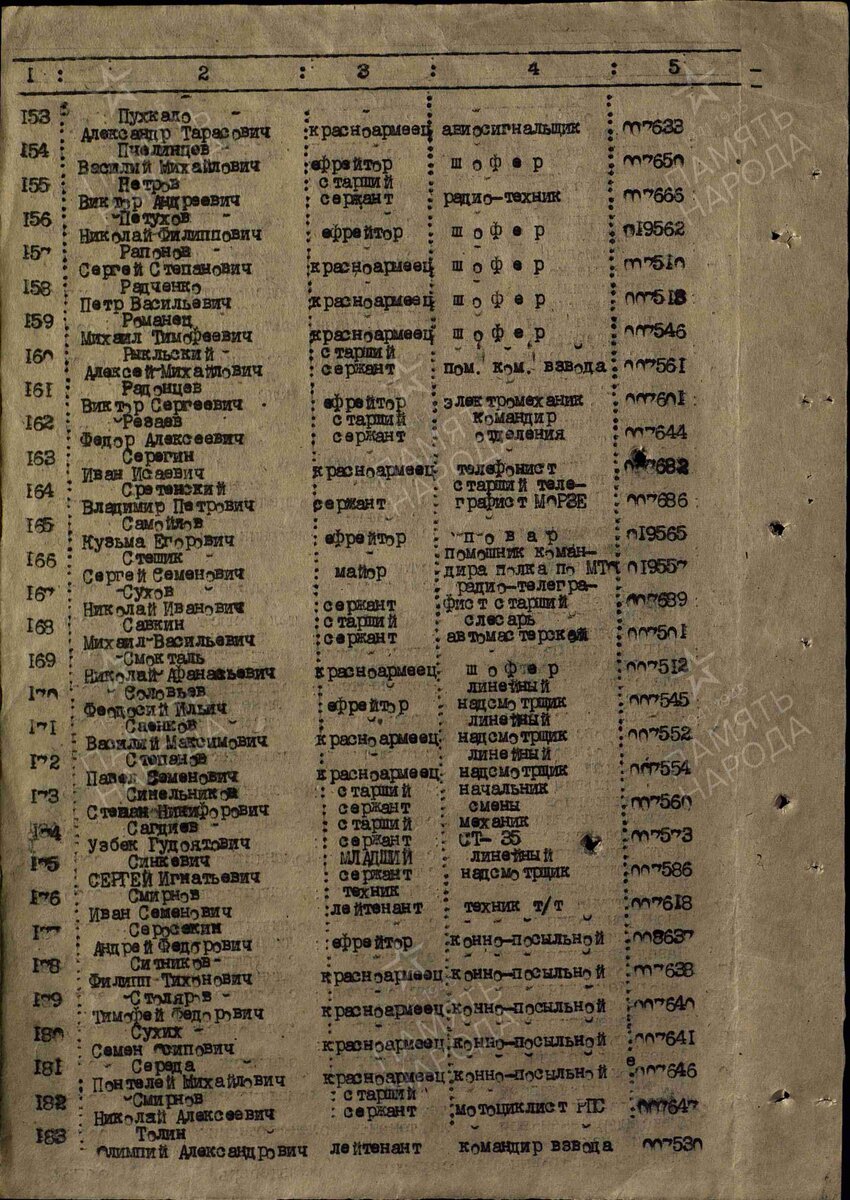 I : 2 : 3 : 4 : 5
153 Пухкало
Александр Тарасович красноармеец авиосигнальщик 007633
154 Пчелинцев
Василий Михайлович ефрейтор шофер 007650
155 Петров старший
Виктор Андреевич сержант радио-техник 007666
156 Петухов
Николай Филиппович ефрейтор шофер 019562
157 Рапонов
Сергей Степанович красноармеец шофер 007510
158 Радченко
Петр Васильевич красноармеец шофер 007513
159 Романец
Михаил Тимофеевич красноармеец шофер 007546
160 Рыкльский старший
Алексей Михайлович сержант пом. ком. взвода 007561
161 Радонцев
Виктор Сергеевич ефрейтор электромеханик 007601
162 Резаев старший командир
Федор Алексеевич сержант отделения 007644
163 Серегин
Иван Исаевич красноармеец телефонист 007682
164 Сретенский старший теле-
Владимир Петрович сержант графист МОРЗЕ 007686
165 Самойлов
Кузьма Егорович ефрейтор повар 019565
166 Стешик помошник коман-
Сергей Семенович майор дира полка по МТО 019557
167 Сухов радио-телегра-
Николай Иванович сержант фист старший 007689
168 Савкин старший слесарь
Михаил Васильевич сержант автомастерской 007501
169 Смокталь
Николай Афанасьевич красноармеец шофер 007512
170 Соловьев линейный
Феодосий Ильич ефрейтор надсмотрщик 007545
171 Саенков линейный
Василий Максимович красноармеец надсмотрщик 007552
172 Степанов линейный
Павел Семенович красноармеец надсмотрщик 007554
173 Синельников старший начальник
Степан Никифорович сержант смены 007560
174 Сагдиев старший механик
Узбек Гудоятович сержант СТ-35 007573
175 Синкевич МЛАДШИЙ линейный
СЕРГЕЙ Игнатьевич сержант надсмотрщик 007586
176 Смирнов техник
Иван Семенович лейтенант техник т/т 007618
177 Серосекин
Андрей Федорович ефрейтор конно-посыльной 008637
178 Ситников
Филипп Тихонович красноармеец конно-посыльной 007638
179 Столяров
Тимофей Федорович красноармеец конно-посыльной 007640
180 Сухих
Семен Осипович красноармеец конно-посыльной 007641
181 Середа
Понтелей Михайлович красноармеец конно-посыльной 007646
182 Смирнов старший
Николай Алексеевич сержант мотоциклист РПС 007647
183 Толин
Олимпий Александрович лейтенант командир взвода 007530
ПАМЯТЬ
НАРОДА
ПАМЯТЬ
НАРОДА